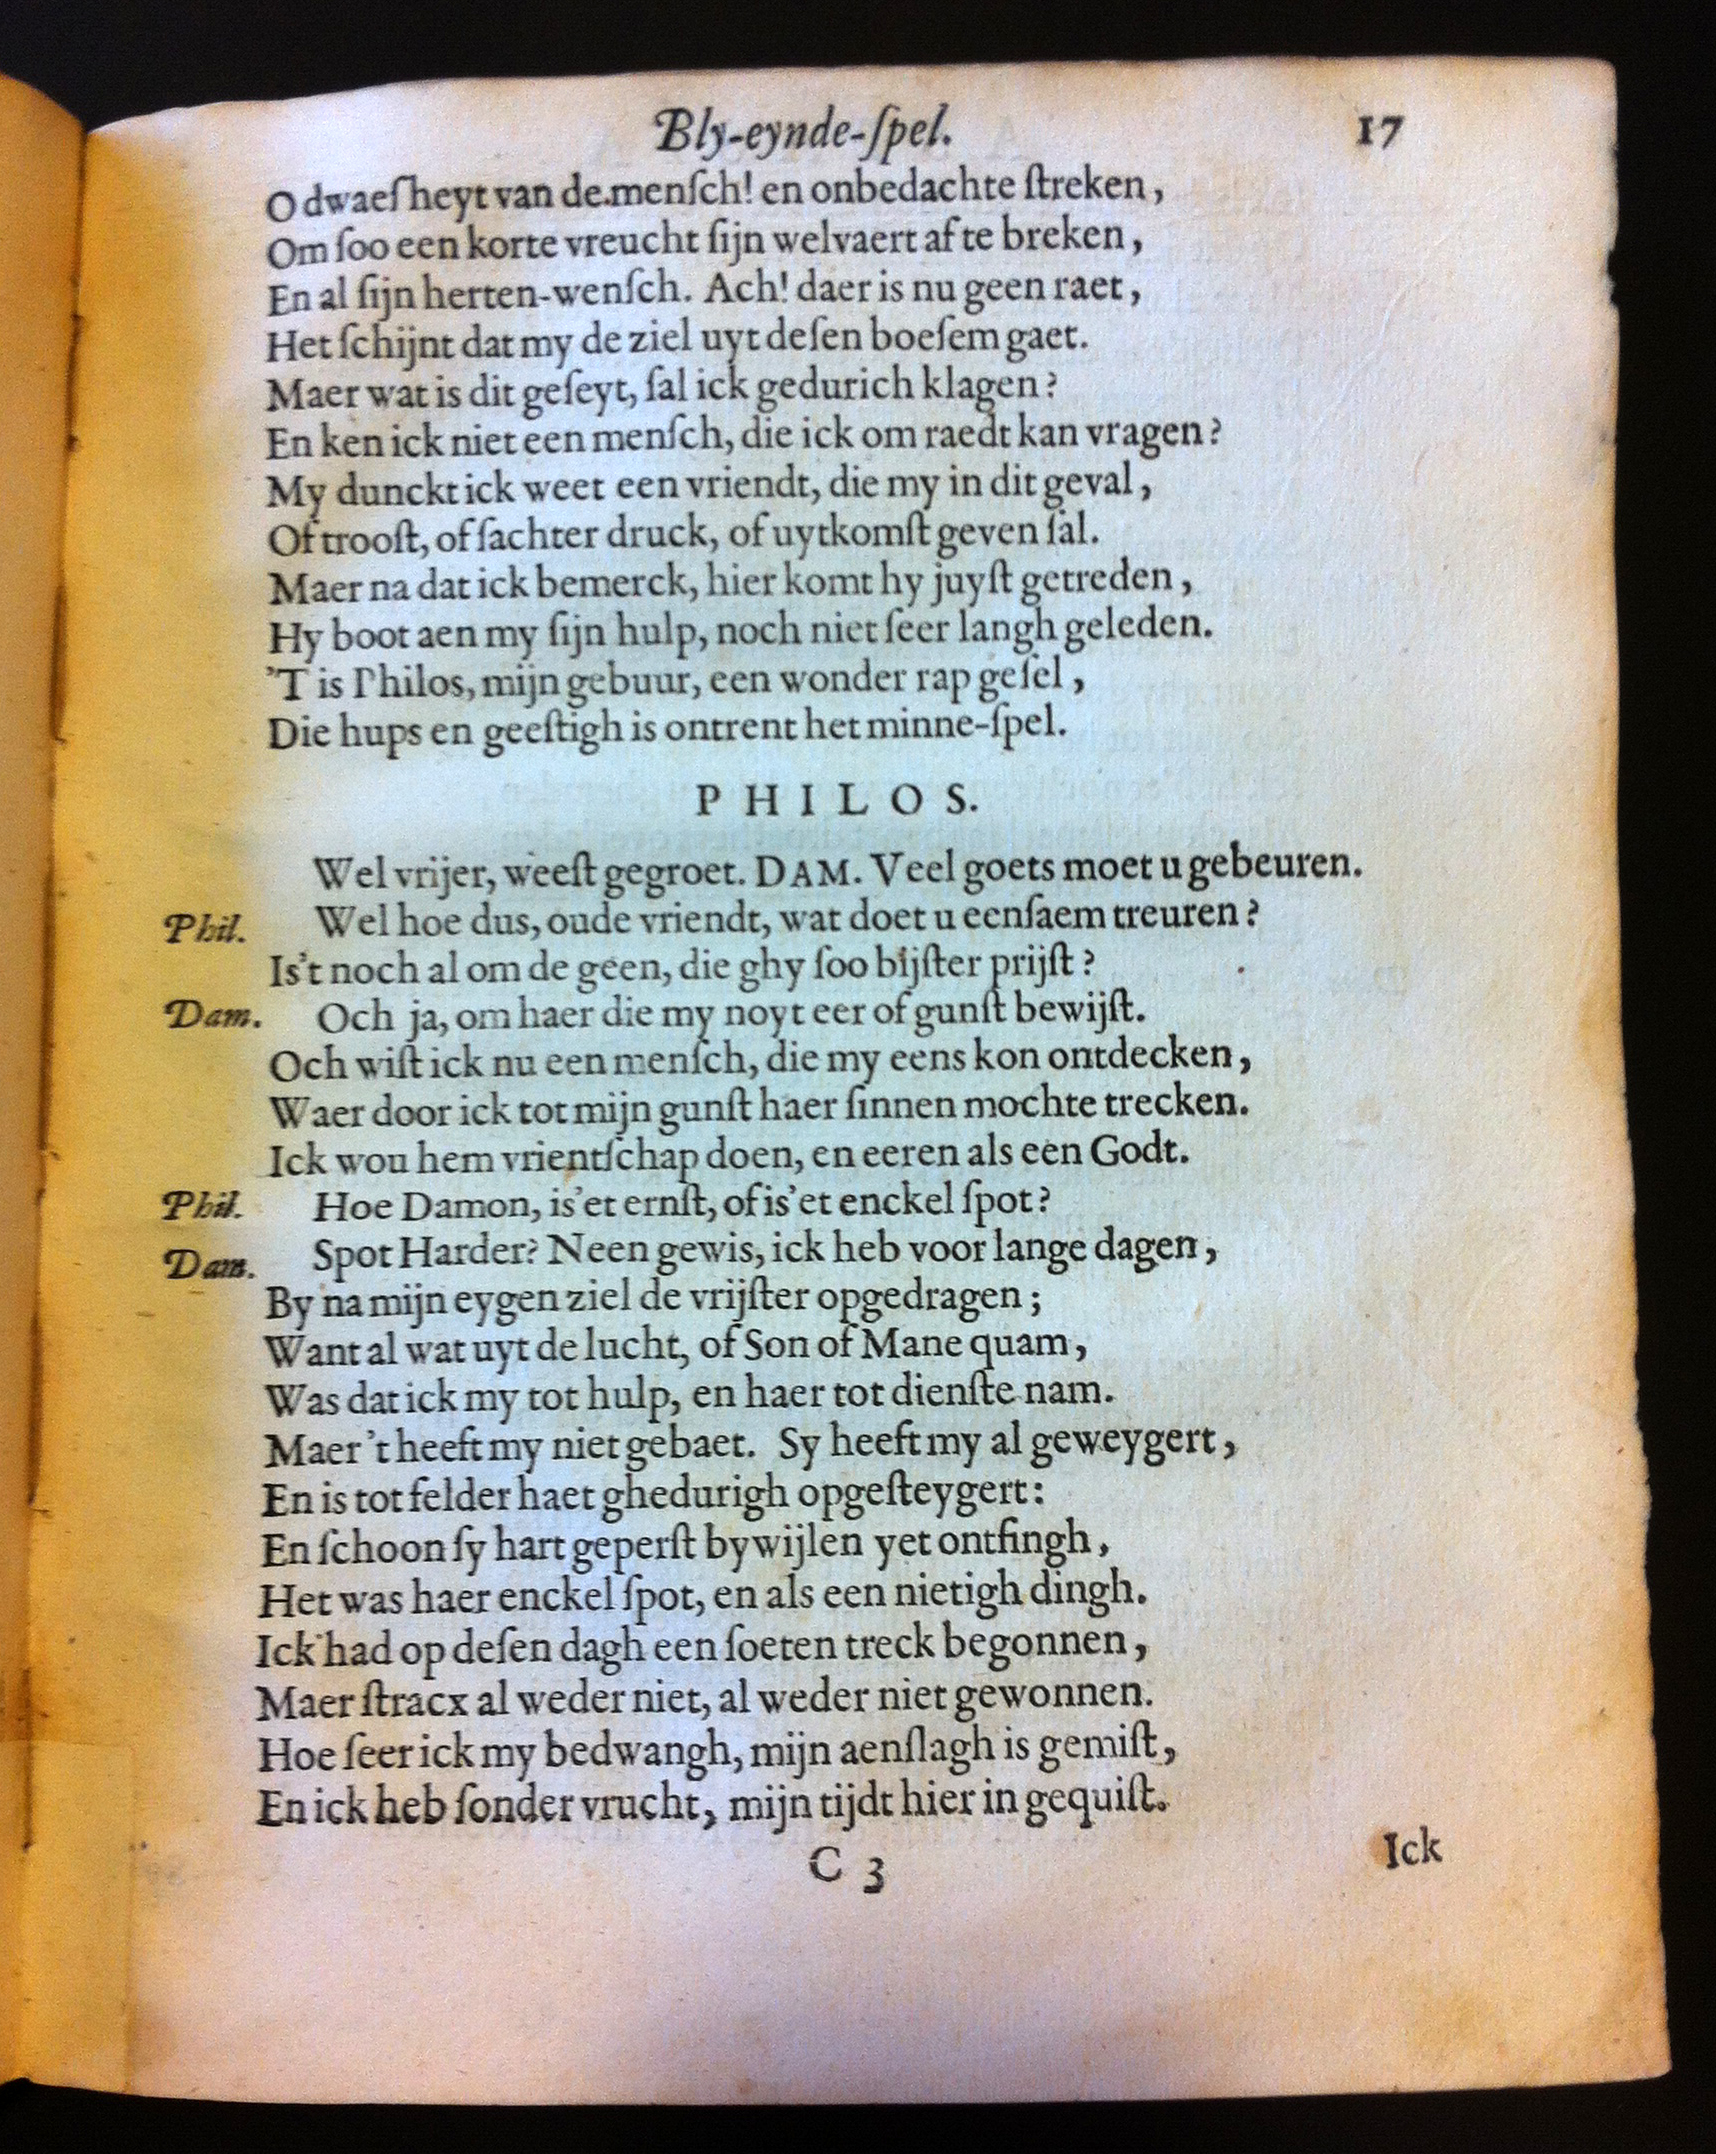 Bly-eynde-ſpel. 17
O dwaeſheyt van de menſch! en onbedachte ſtreken,
Om ſoo een korte vreucht ſijn welvaert af te breken,
En al ſijn herten-wenſch. Ach! daer is nu geen raet,
Het ſchijnt dat my de ziel uyt deſen boeſem gaet.
Maer wat is dit geſeyt, ſal ick gedurich klagen?
En ken ick niet een menſch, die ick om raedt kan vragen?
My dunckt ick weet een vriendt, die my in dit geval,
Of trooſt, of ſachter druck, of uytkomſt geven ſal.
Maer na dat ick bemerck, hier komt hy juyſt getreden,
Hy boot aen my ſijn hulp, noch niet ſeer langh geleden.
'T is Philos, mijn gebuur, een wonder rap geſel,
Die hups en geeſtigh is ontrent het minne-ſpel.
PHILOS.
Wel vrijer, weeſt gegroet. DAM. Veel goets moet u gebeuren.
Phil. Wel hoe dus, oude vriendt, wat doet u eenſaem treuren?
Is't noch al om de geen, die ghy ſoo bijſter prijſt?
Dam. Och ja, om haer die my noyt eer of gunſt bewijſt.
Och wiſt ick nu een menſch, die my eens kon ontdecken,
Waer door ick tot mijn gunſt haer ſinnen mochte trecken.
Ick wou hem vrientſchap doen, en eeren als een Godt.
Phil. Hoe Damon, is'et ernſt, of is'et enckel ſpot?
Dam. Spot Harder? Neen gewis, ick heb voor lange dagen,
By na mijn eygen ziel de vrijſter opgedragen;
Want al wat uyt de lucht, of Son of Mane quam,
Was dat ick my tot hulp, en haer tot dienſte nam.
Maer 't heeft my niet gebaet. Sy heeft my al geweygert,
En is tot felder haet ghedurigh opgeſteygert:
En ſchoon ſy hart geperſt bywijlen yet ontfingh,
Het was haer enckel ſpot, en als een nietigh dingh.
Ick had op deſen dagh een ſoeten treck begonnen,
Maer ſtracx al weder niet, al weder niet gewonnen.
Hoe ſeer ick my bedwangh, mijn aenſlagh is gemiſt,
En ick heb ſonder vrucht, mijn tijdt hier in gequiſt.
C 3 Ick